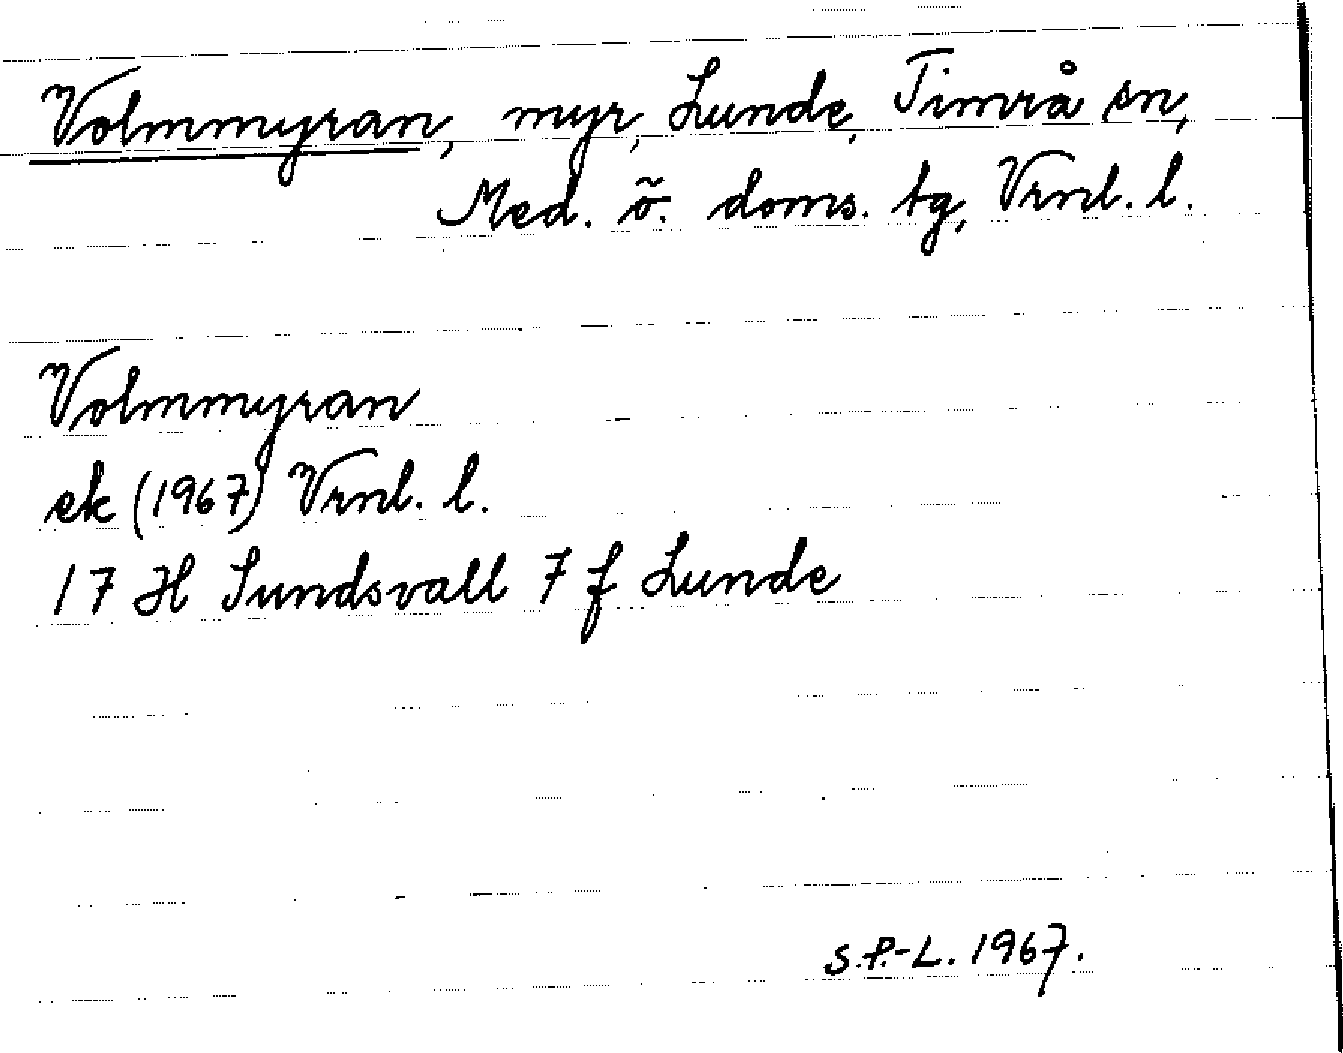 Volmmyran, myr, Lunde, Timrå sn,
Med. ö. doms. tg, Vrnl. l.
Volmmyran
ek (1967) Vrnl. l.
17 H Sundsvall 7 f Lunde
S.P.-L. 1967.